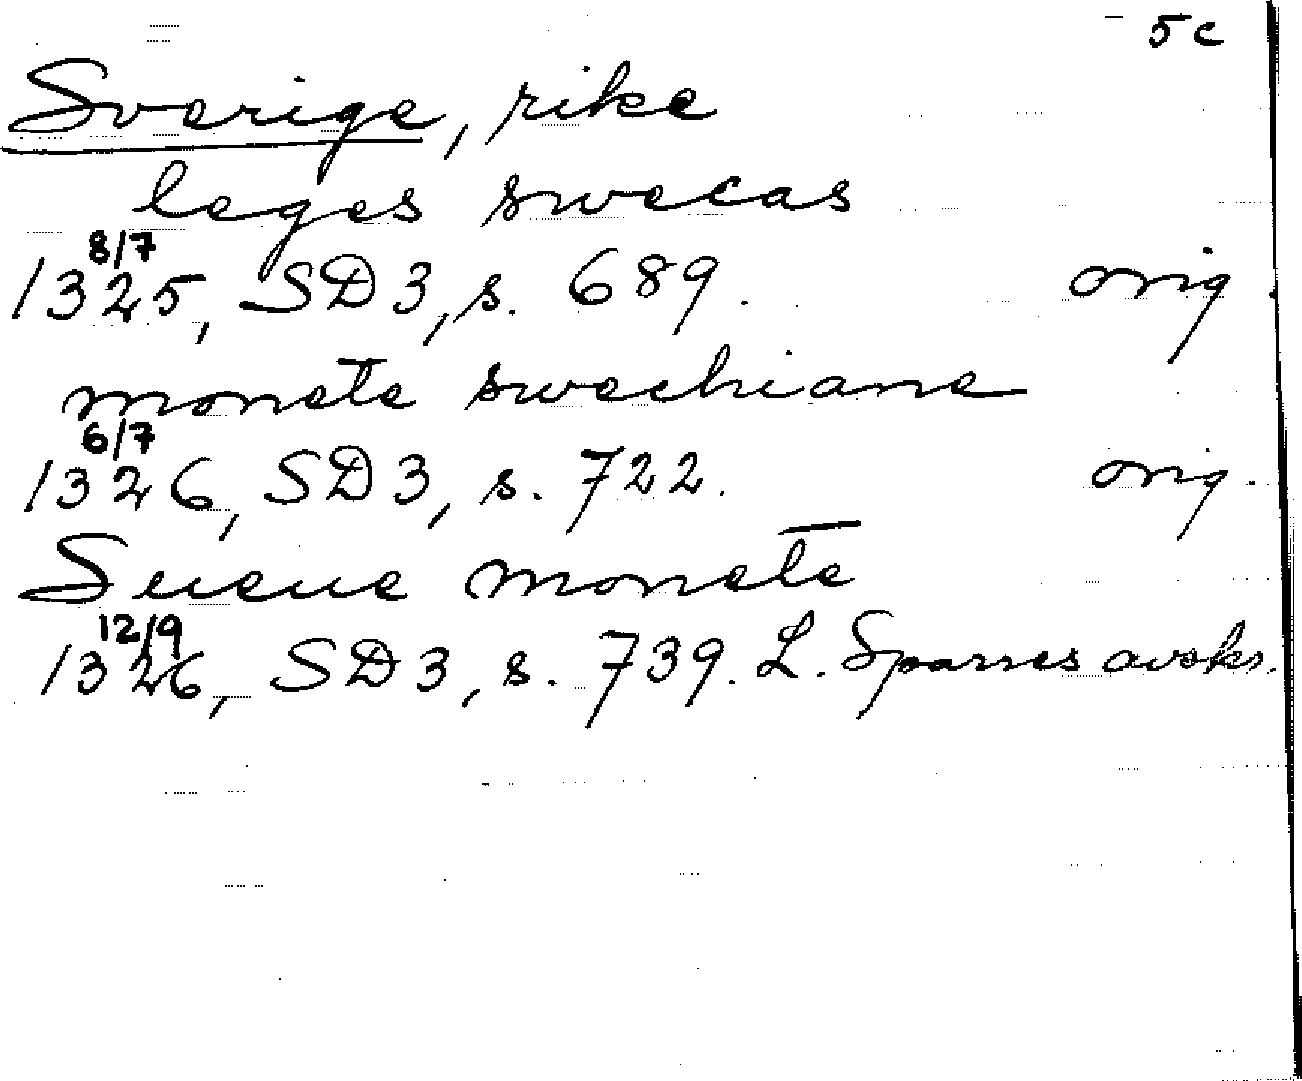 5c
Sverige, rike
leges swecas
8/7
1325, SD 3, s. 689. orig.
monete swechiane
6/7
1326, SD 3, s. 722. orig.
Sueue monete
12/9
1326, SD 3, s. 739. L. Sparres avskr.